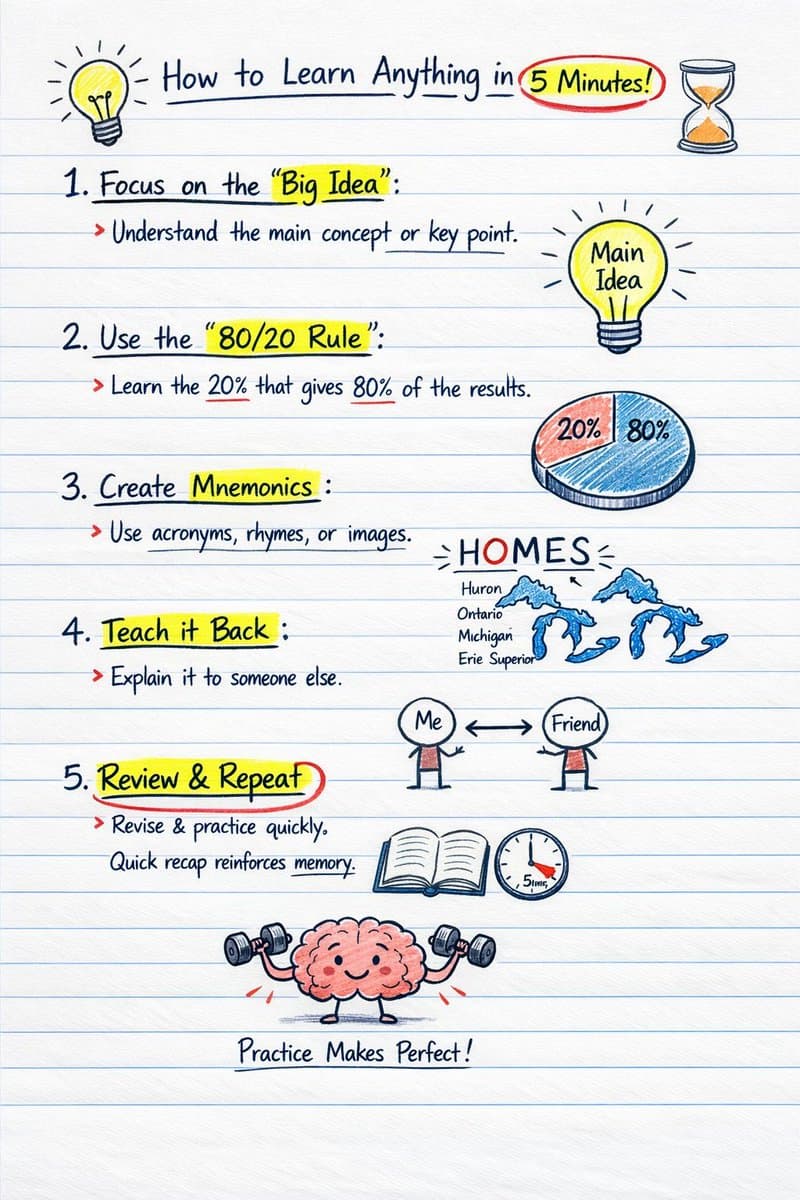 How to Learn Anything in 5 Minutes!
1. Focus on the "Big Idea":
> Understand the main concept or key point.
Main
Idea
2. Use the "80/20 Rule":
> Learn the 20% that gives 80% of the results.
20% 80%
3. Create Mnemonics:
> Use acronyms, rhymes, or images.
HOMES
Huron
Ontario
Michigan
Erie Superior
4. Teach it Back:
> Explain it to someone else.
Me Friend
5. Review & Repeat
> Revise & practice quickly.
Quick recap reinforces memory.
Practice Makes Perfect!